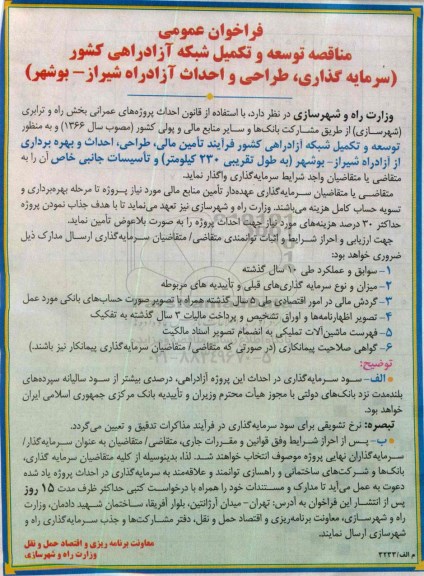 فراخوان عمومی
مناقصه توسعه و تکمیل شبکه آزادراهی کشور
(سرمایه گذاری، طراحی و احداث آزادراه شیراز– بوشهر)
وزارت راه و شهرسازی در نظر دارد، با استفاده از قانون احداث پروژه‌های عمرانی بخش راه و ترابری
(شهرسازی) از طریق مشارکت بانک‌ها و سایر منابع مالی و پولی کشور (مصوب سال ۱۳۶۶) و به منظور
توسعه و تکمیل شبکه آزادراهی کشور فرآیند تأمین مالی، طراحی، احداث و بهره برداری
از آزادراه شیراز– بوشهر (به طول تقریبی ۲۳۰ کیلومتر) و تأسیسات جانبی خاص آن را به
متقاضی یا متقاضیان واجد شرایط سرمایه‌گذاری واگذار نماید.
متقاضی یا متقاضیان سرمایه‌گذاری عهده‌دار تأمین منابع مالی مورد نیاز پروژه تا مرحله بهره‌برداری و
تسویه حساب کامل هزینه می‌باشند. وزارت راه و شهرسازی نیز تعهد می‌نماید تا با هدف جذاب نمودن پروژه
حداکثر ۳۰ درصد هزینه‌های مورد نیاز جهت احداث پروژه را به صورت بلاعوض تأمین نماید.
جهت ارزیابی و احراز شرایط و اثبات توانمندی متقاضی/ متقاضیان سرمایه‌گذاری ارسال مدارک ذیل
ضروری خواهد بود:
۱– سوابق و عملکرد طی ۱۰ سال گذشته
۲– میزان و نوع سرمایه گذاری‌های قبلی و تأییدیه های مربوطه
۳– گردش مالی در امور اقتصادی طی ۵ سال گذشته همراه با تصویر صورت حساب‌های بانکی مورد عمل
۴– تصویر اظهارنامه‌ها و اوراق تشخیص و پرداخت مالیات ۳ سال گذشته به تفکیک
۵– فهرست ماشین‌آلات تملیکی به انضمام تصویر اسناد مالکیت
۶– گواهی صلاحیت پیمانکاری (در صورتی که متقاضی/ متقاضیان سرمایه‌گذاری پیمانکار نیز باشند)
توضیح:
الف– سود سرمایه‌گذاری در احداث این پروژه آزادراهی، درصدی بیشتر از سود سالیانه سپرده‌های
بلندمدت نزد بانک‌های دولتی با مجوز هیأت محترم وزیران و تأییدیه بانک مرکزی جمهوری اسلامی ایران
خواهد بود.
تبصره: نرخ تشویقی برای سود سرمایه‌گذاری در فرآیند مذاکرات تدقیق و تعیین می‌گردد.
ب– پس از احراز شرایط وفق قوانین و مقررات جاری، متقاضی/ متقاضیان به عنوان سرمایه‌گذار/
سرمایه‌گذاران نهایی پروژه موصوف انتخاب خواهند شد. لذا، بدینوسیله از کلیه متقاضیان سرمایه گذاری،
بانک‌ها و شرکت‌های ساختمانی و راهسازی توانمند و علاقه‌مند به سرمایه‌گذاری در احداث پروژه یاد شده
دعوت به عمل می‌آید تا مدارک و مستندات خود را همراه با درخواست کتبی حداکثر ظرف مدت ۱۵ روز
پس از انتشار این فراخوان به آدرس: تهران– میدان آرژانتین، بلوار آفریقا، ساختمان شهید دادمان، وزارت
راه و شهرسازی، معاونت برنامه‌ریزی و اقتصاد حمل و نقل، دفتر مشارکت‌ها و جذب سرمایه‌گذاری راه و
شهرسازی ارسال نمایند.
معاونت برنامه ریزی و اقتصاد حمل و نقل
وزارت راه و شهرسازی
م الف/۳۲۳۳